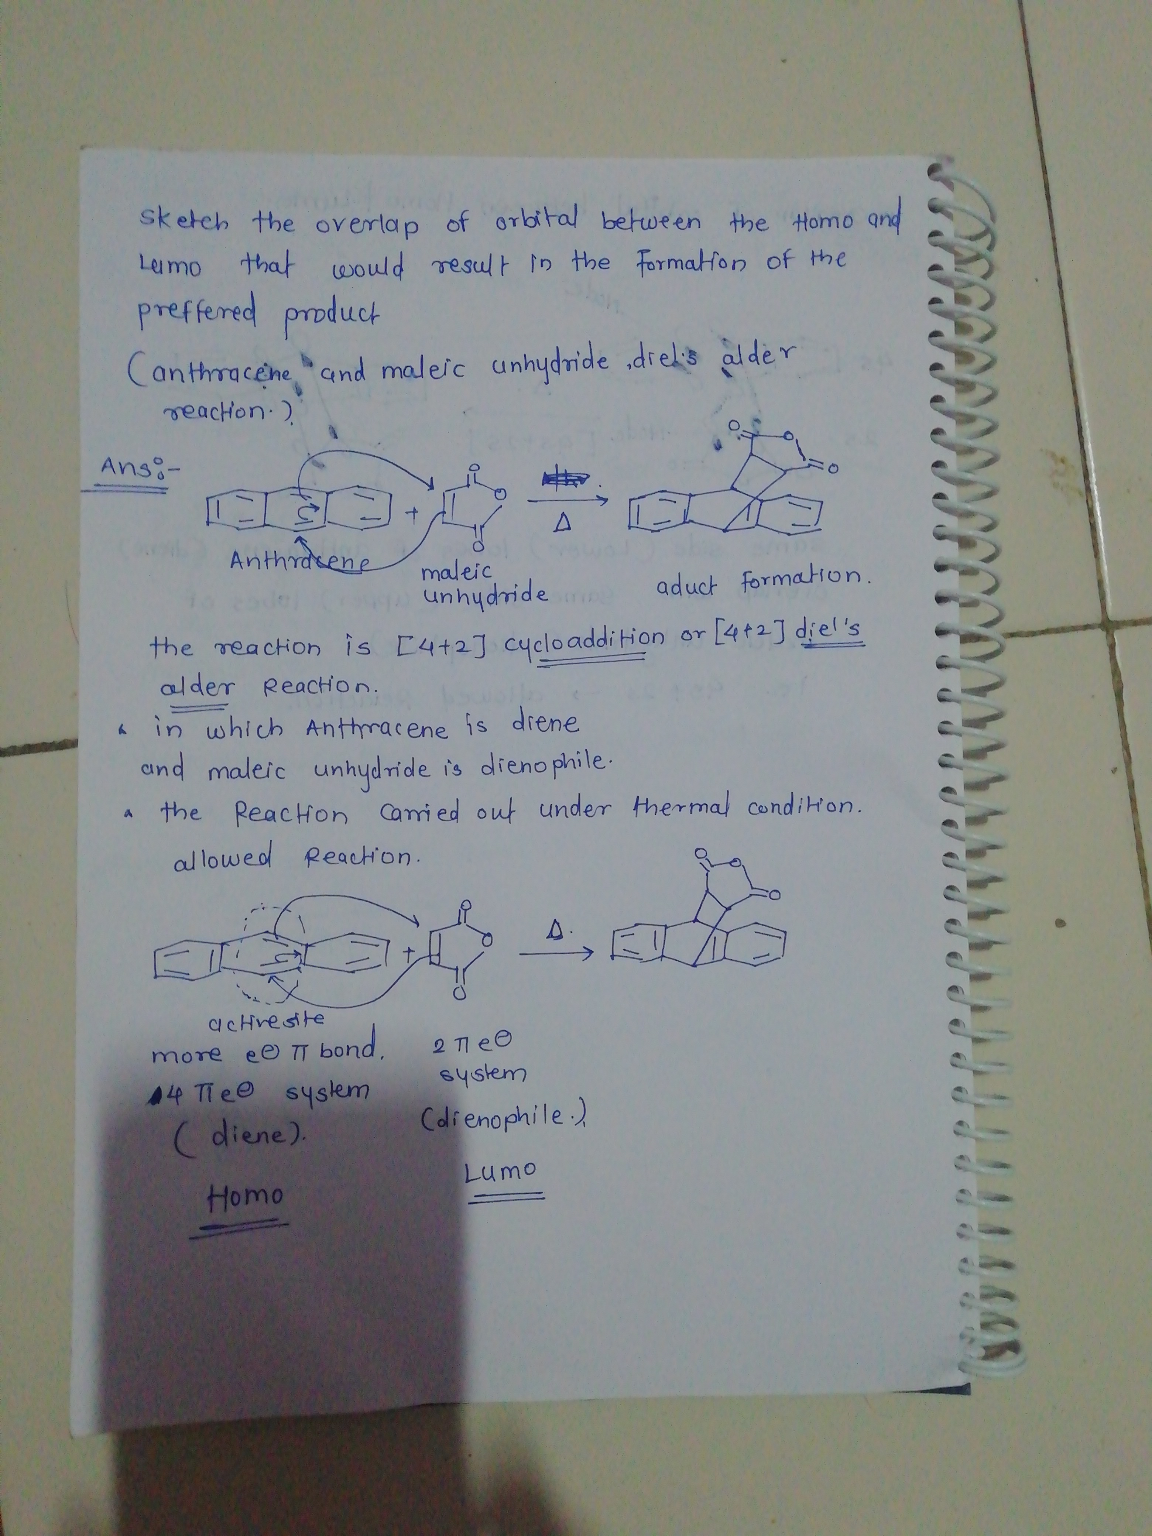 sketch the overlap of orbital between the Homo and
Lumo that would result in the formation of the
preffered product
(anthracene and maleic unhydride, diel's alder
reaction.)
Ans:-
O
O
O
O
O
O
+
Δ
Anthracene
maleic
unhydride
aduct formation.
the reaction is [4+2] cycloaddition or [4+2] diel's
alder Reaction.
in which Anthracene is diene
and maleic unhydride is dienophile.
the Reaction Carried out under thermal condition.
allowed Reaction.
O
O
O
O
O
O
+
Δ.
active site
more e⊖ π bond.
2 π e⊖
4 π e⊖ system
system
(diene).
(dienophile.)
Homo
Lumo